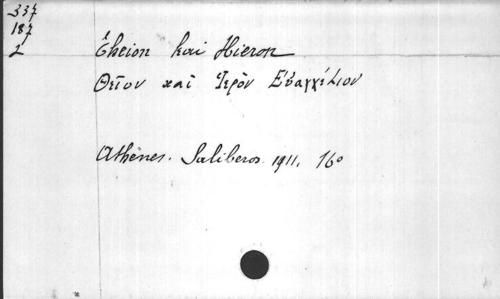 337
187
2
Theion kai Hieron
Θεῖον καὶ Ἱερὸν Εὐαγγέλιον
Athènes. Saliberos. 1911. 16°